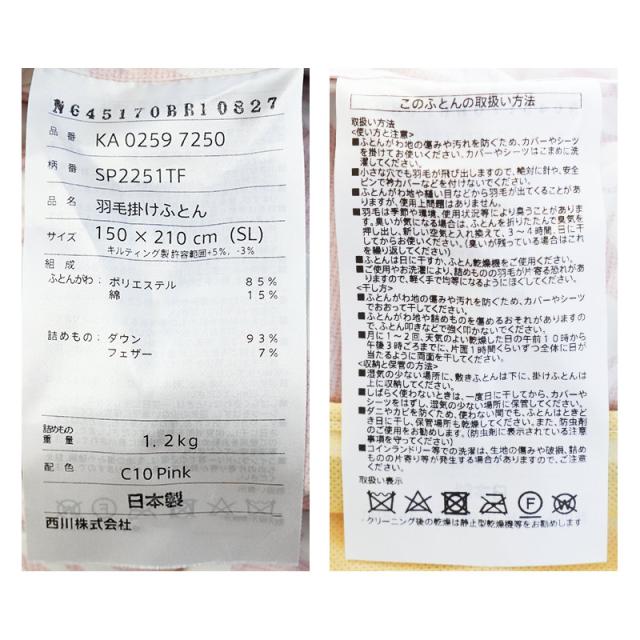 N645170BR10827
品番 KA 0259 7250
柄番 SP2251TF
品名 羽毛掛けふとん
サイズ 150 × 210 cm (SL)
キルティング製 許容範囲+5%, -3%
組成
ふとんがわ: ポリエステル 85%
綿 15%
詰めもの: ダウン 93%
フェザー 7%
詰めもの
重量 1.2kg
配色 C10 Pink
日本製
西川株式会社
このふとんの取扱い方法
取扱い方法
<使い方と注意>
■ふとんがわ地の傷みや汚れを防ぐため、カバーやシーツ
を掛けてお使いください。カバーやシーツはこまめに洗
濯してください。
■小さな穴でも羽毛が飛び出しますので、絶対に針や、安全
ピンで衿カバーなどを付けないでください。
■ふとんがわ地や縫い目などから羽毛が出てくることがあ
りますが、使用上問題はありません。
■羽毛は季節や環境、使用状況等により臭うことがありま
す。臭いが気になる場合は、ふとんを折りたたんで臭気を
押し出し、新しい空気と入れ換えて、3～4時間、日に干
してからお使いください。(臭いが残っている場合はこれ
を繰り返してください)
■ふとんは日に干すか、ふとん乾燥機をご使用ください。
■ご使用やお洗濯により、詰めものの羽毛が片寄る恐れがあ
りますので、軽く手で均等になるようにほぐしてください。
<干し方>
■ふとんがわ地の傷みや汚れを防ぐため、カバーやシーツ
でおおって干してください。
■ふとんがわ地や詰めものを傷めるおそれがありますの
で、ふとん叩きなどで強く叩かないでください。
■月に1～2回、天気のよい乾燥した日の午前10時から
午後3時ごろまでに、片面1時間くらいずつ全体に日が
当たるように両面を干してください。
<収納と保管の方法>
■湿気の少ない場所に、敷きふとんは下に、掛けふとんは
上に収納してください。
■しばらく使わないときは、一度日に干してから、カバーや
シーツをはずし、湿気の少ない場所に保管してください。
■ダニやカビを防ぐため、使わない間でも、ふとんはときど
き日に干し、保管場所も乾燥してください。また、防虫剤
のご使用をお勧めします。(防虫剤に表示されている注意
事項を守ってください)
■コインランドリー等での洗濯は、生地の傷みや破損、詰め
ものの片寄り等が発生する場合がありますので、ご注意
ください。
取扱い表示
F W
クリーニング後の乾燥は静止型乾燥機等をお勧めします